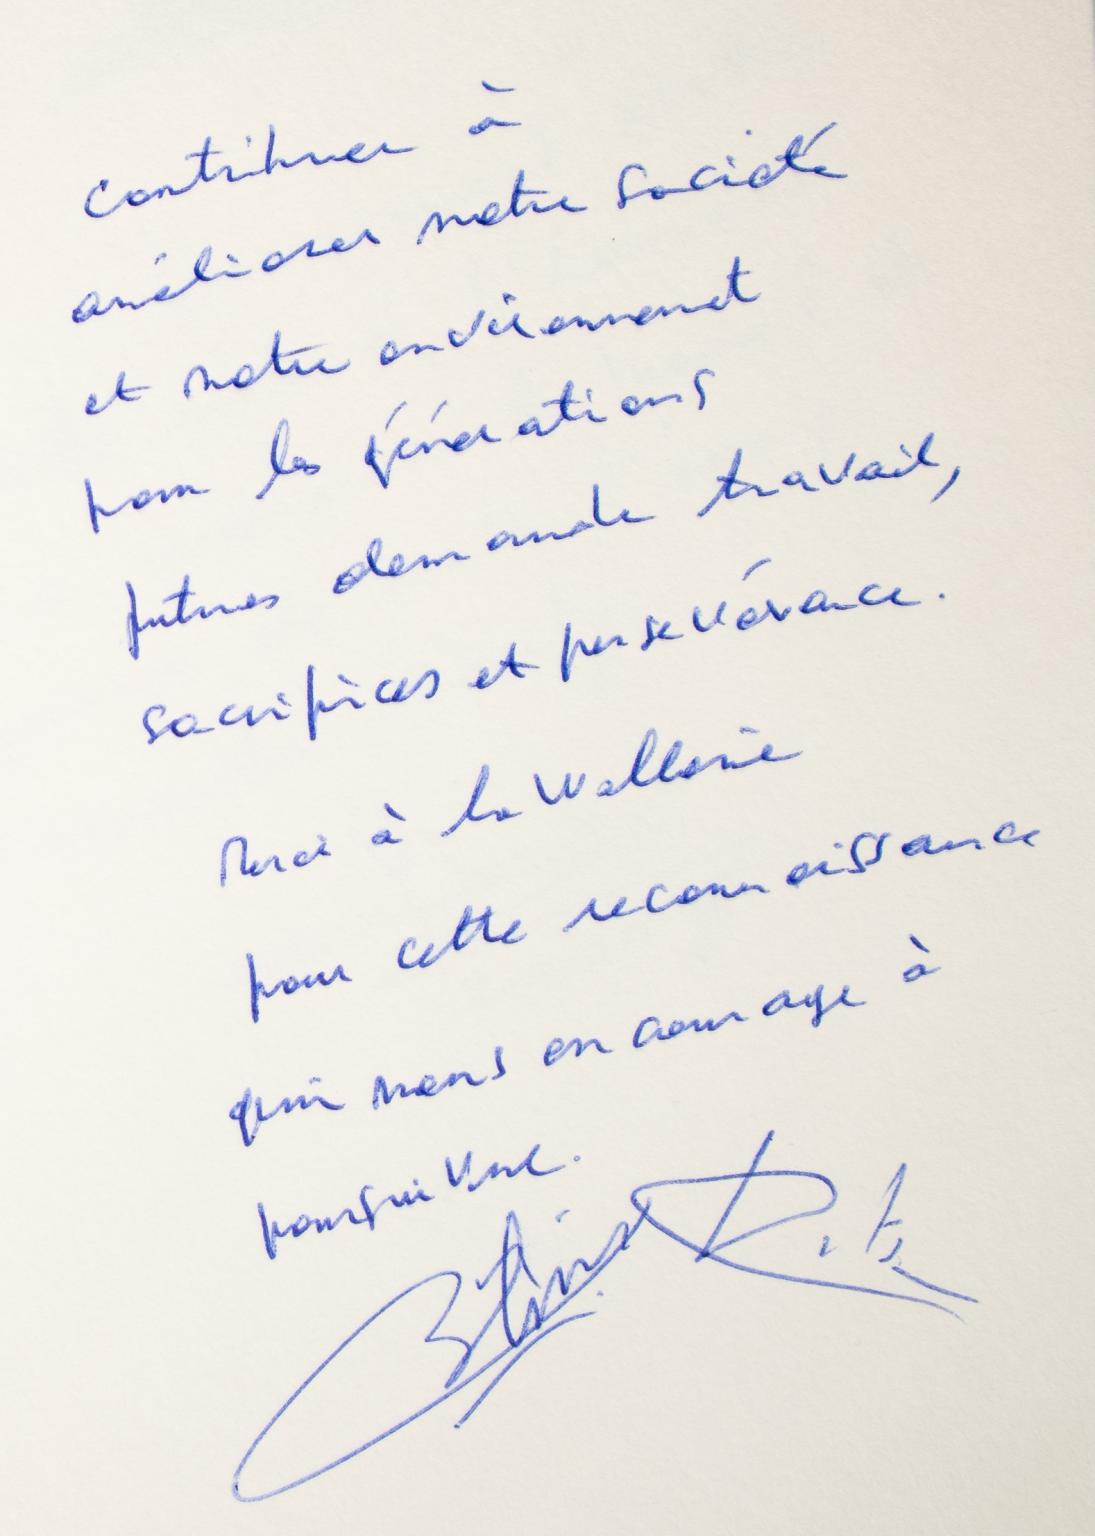 contribuer à
améliorer notre société
et notre environnement
pour les générations
futures demande travail,
sacrifices et persevérance.
Merci à la Wallonie
pour cette reconnaissance
qui nous encourage à
poursuivre.